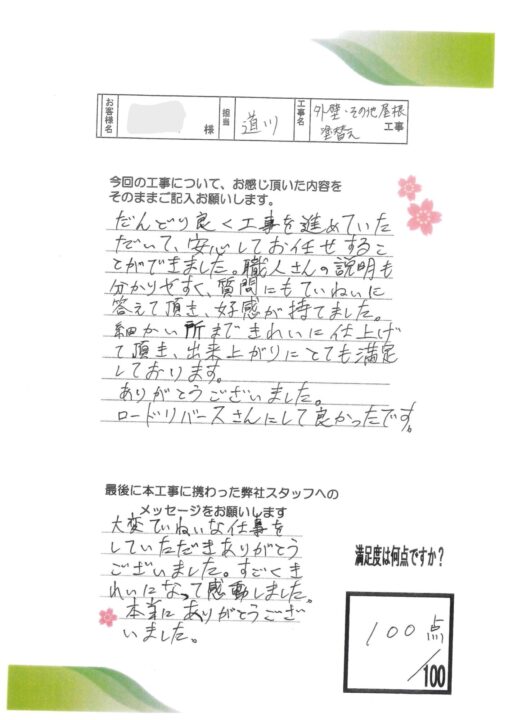 お客様名 様 担当 道川 工事名 外壁・その他屋根
塗替え 工事
今回の工事について、お感じ頂いた内容を
そのままご記入お願いします。
だんどり良く工事を進めていた
だいて、安心してお任せするこ
とができました。職人さんの説明も
分かりやすく、質問にもていねいに
答えて頂き、好感が持てました。
細かい所まできれいに仕上げ
て頂き、出来上がりにとても満足
しております。
ありがとうございました。
ロードリバースさんにして良かったです。
最後に本工事に携わった弊社スタッフへの
メッセージをお願いします
大変ていねいな仕事を
していただきありがとう
ございました。すごくき
れいになって感動しました。
本当にありがとうござ
いました。
満足度は何点ですか?
100点
/100